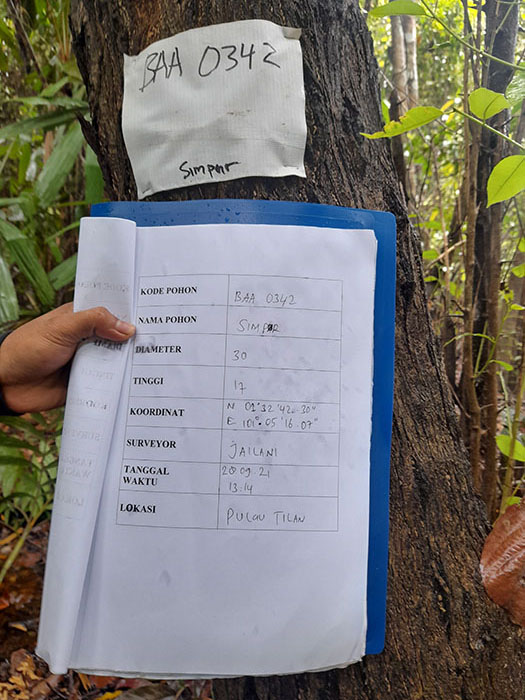 BAA 0342
Simpur
KODE POHON BAA 0342
NAMA POHON SIMPUR
DIAMETER 30
TINGGI 17
KOORDINAT N 01°32'42.30"
E 101°05'16.07"
SURVEYOR JAILANI
TANGGAL 20.09.21
WAKTU 13:14
LOKASI PULAU TILAN